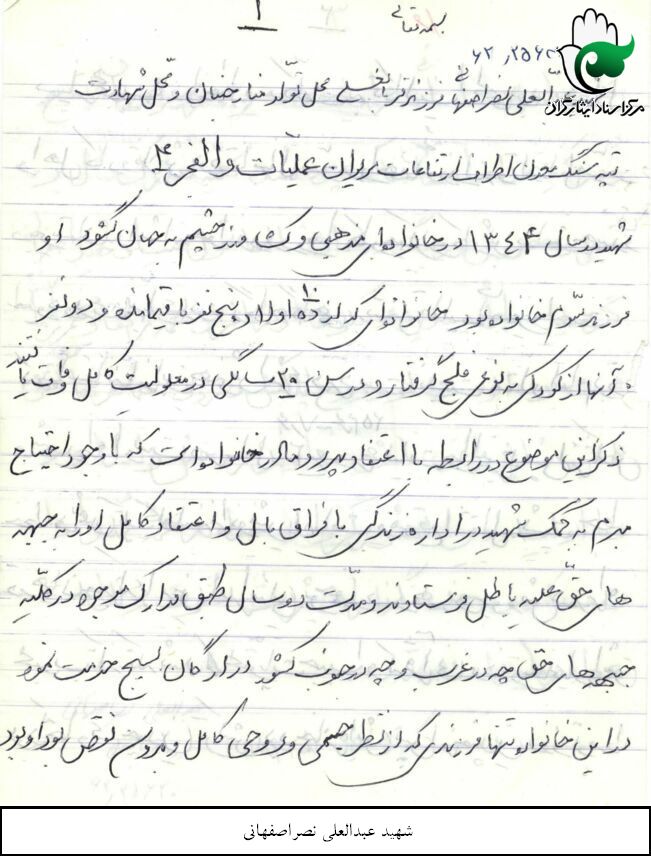 ۱
بسمه تعالی
۶۲٫۲۵۶
مرکز اسناد ایثارگران
عبدالعلی نصراصفهانی فرزند قربانعلی محل تولد خیارضیان و محل شهادت
تپه سنگ معدن اطراف ارتفاعات مریوان عملیات والفجر ۴
شهید در سال ۱۳۴۴ در خانواده‌ای مذهبی و کشاورز چشم به جهان گشود او
فرزند سوم خانواده بود خانواده‌ای که از ده ۱۰ اولاد پنج نفر باقیمانده و دو نفر
آنها از کودکی به نوعی فلج گرفتار و در سن ۲۰ سالگی در معلولیت کامل وفات یافتند
ذکر این موضوع در رابطه با اعتقاد پدر و مادر خانواده است که با وجود احتیاج
مبرم به کمک شهید در اداره زندگی با فراق بال و اعتقاد کامل او را به جبهه
های حق علیه باطل فرستادند و مدت دو سال طبق مدارک موجود در کلیه
جبهه‌های حق چه در غرب و چه در جنوب کشور در ارگان بسیج خدمت نمود
در این خانواده تنها فرزندی که از نظر جسمی و روحی کامل و بدون نقص بود او بود
شهید عبدالعلی نصراصفهانی